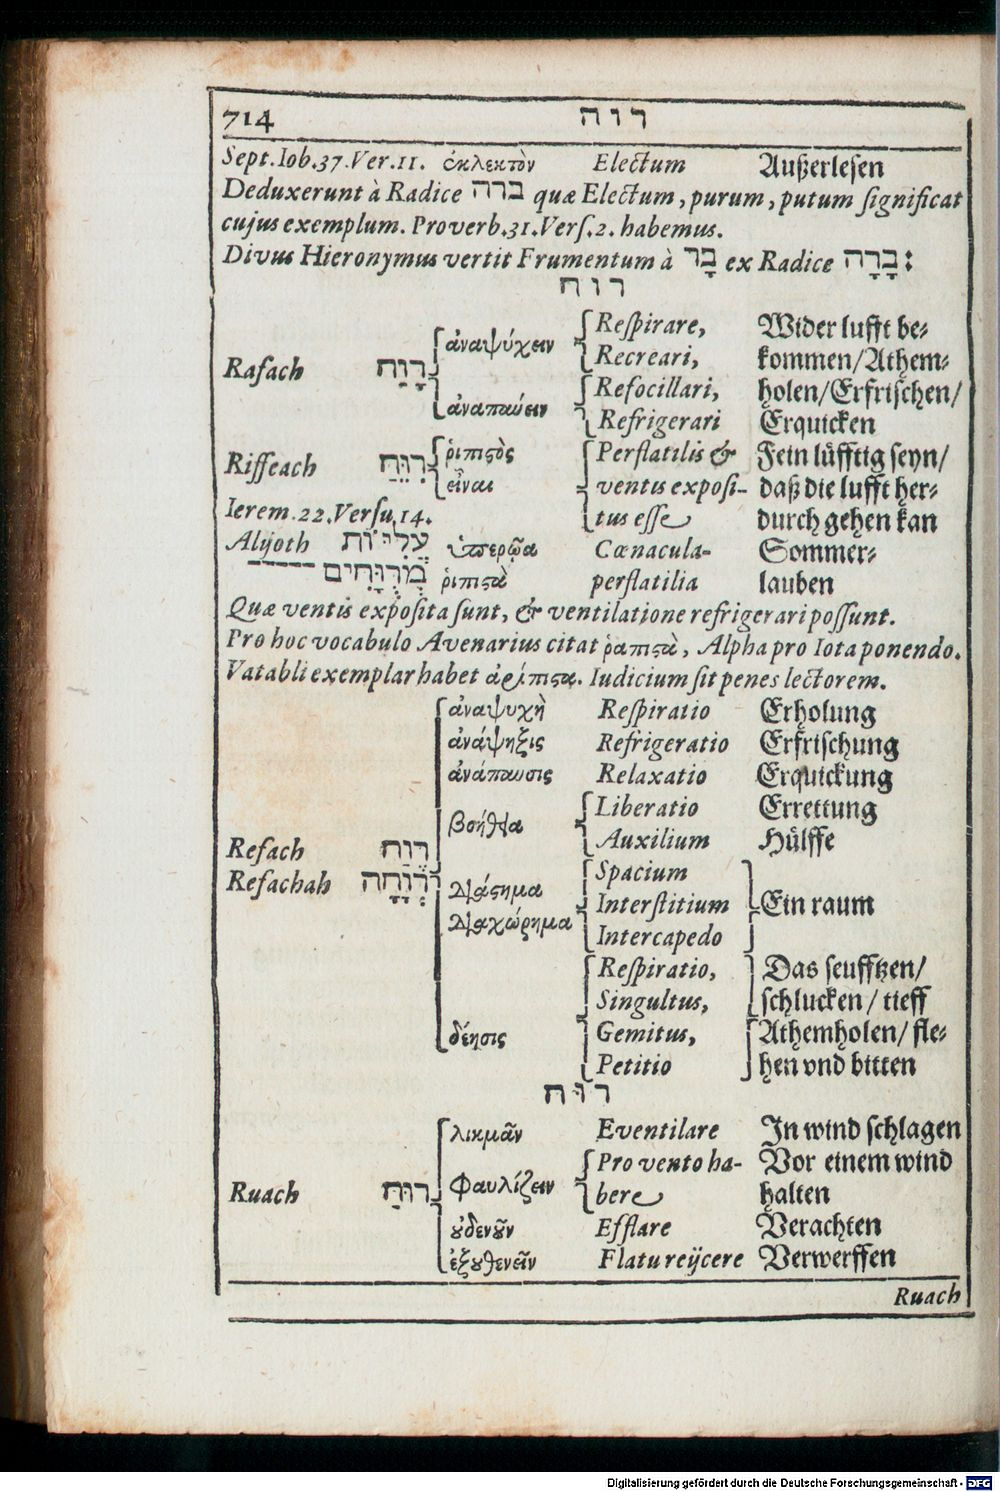 714 רוה
Sept. Iob. 37. Ver. 11. ἐκλεκτὸν Electum Außerlesen
Deduxerunt à Radice ברה quæ Electum, purum, putum significat
cujus exemplum. Proverb. 31. Vers. 2. habemus.
Divus Hieronymus vertit Frumentum à בָּר ex Radice בָּרָה׃
רוח
Respirare, Wider lufft be⸗
ἀναψύχειν
Recreari, kommen/Athem⸗
Rafach רָוַח
Refocillari, holen/Erfrischen/
ἀναπαύειν Refrigerari Erquicken
ῥιπιϛὸς Perflatilis & Fein lüfftig seyn/
Riffeach
εἶναι ventis exposi- daß die lufft her⸗
Ierem. 22. Versu. 14. tus esse durch gehen kan
Alijoth עֲלִיּוֹת ὑπερῷα Cœnacula- Sommer⸗
מְרֻוָּחִים ῥιπιϛὰ perflatilia lauben
Quæ ventis exposita sunt, & ventilatione refrigerari possunt.
Pro hoc vocabulo Avenarius citat ῥαπιϛὰ, Alpha pro Iota ponendo.
Vatabli exemplar habet Iudicium sit penes lectorem.
ἀναψυχὴ Respiratio Erholung
ἀνάψηξις Refrigeratio Erfrischung
ἀνάπαυσις Relaxatio Erquickung
Liberatio Errettung
βοήθεια
Auxilium Hülffe
Refach רֶוַח
Spacium
Refachah רְוָחָה διάϛημα
Interstitium Ein raum
διαχώρημα
Intercapedo
Respiratio, Das seufftzen/
Singultus, schlucken/ tieff
δέησις Gemitus, Athemholen/ fle⸗
Petitio hen vnd bitten
רוּח
λικμᾶν Eventilare In wind schlagen
Pro vento ha- Vor einem wind
φαυλίζειν
Ruach רוּחַ bere halten
ȣ̓δενȣ͂ν Efflare Verachten
ἐξȣθενεῖν Flatu reijcere Verwerffen
Ruach
Digitalisierung gefördert durch die Deutsche Forschungsgemeinschaft - DFG